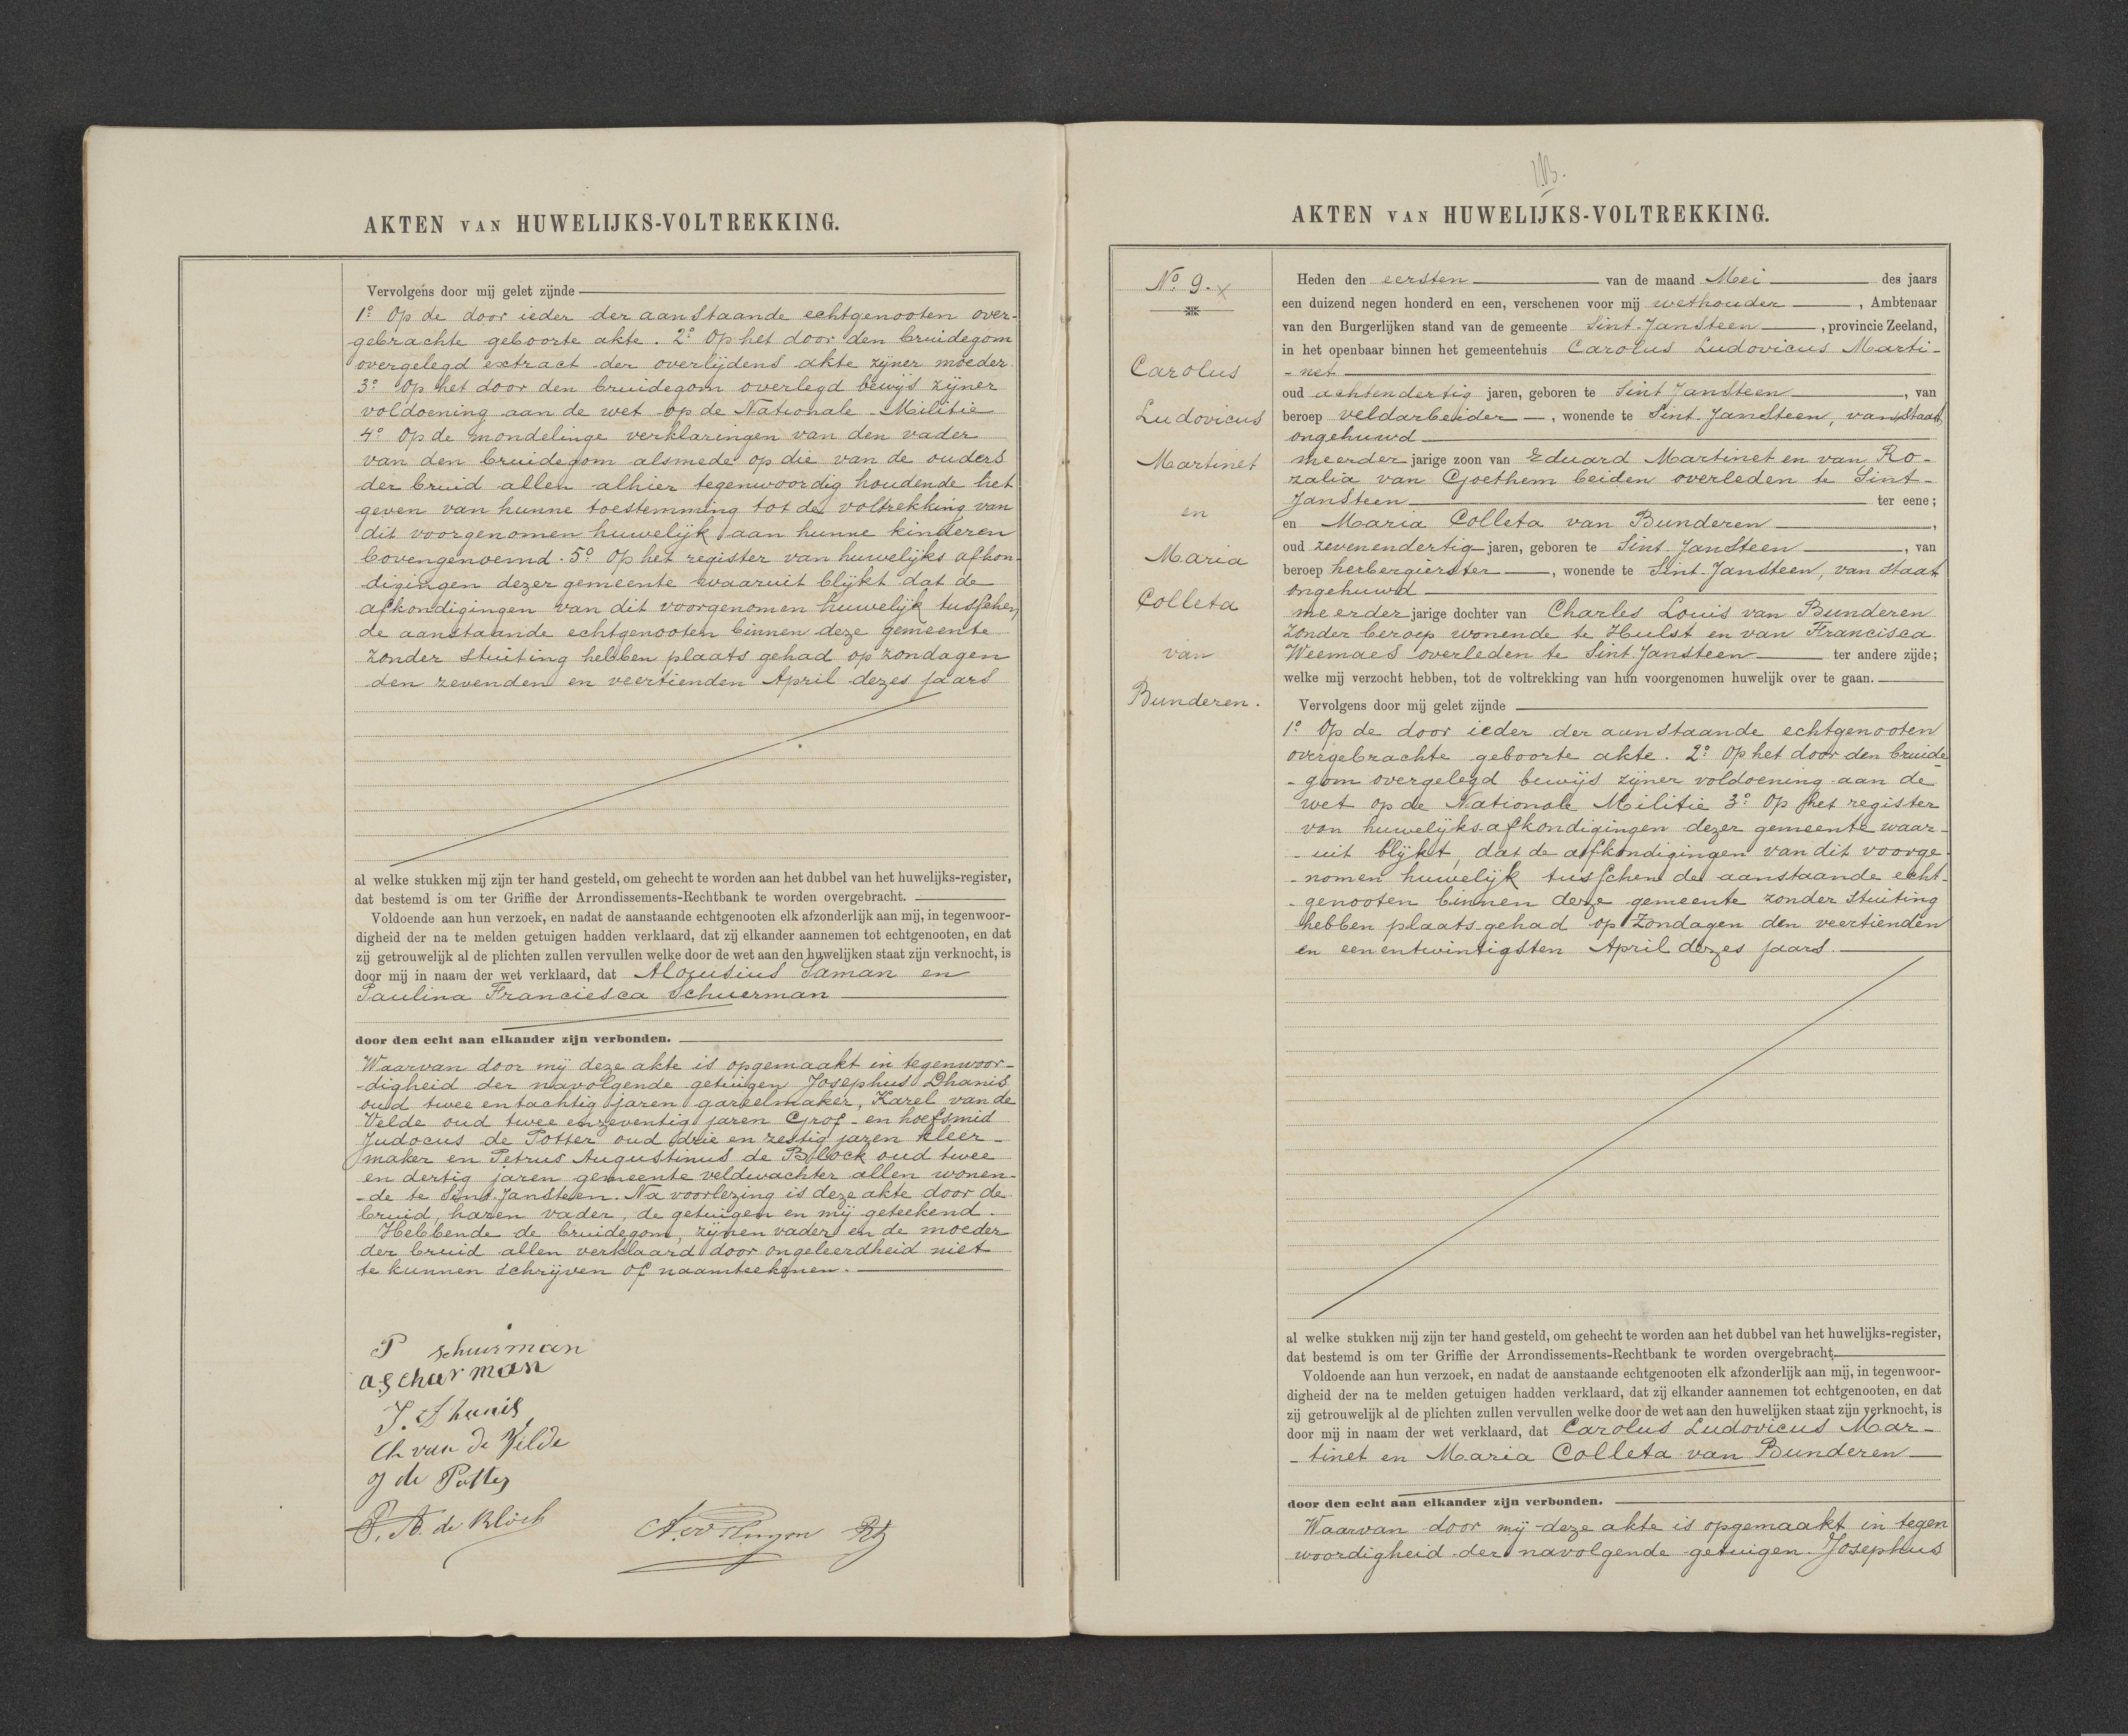 AKTEN VAN HUWELIJKS-VOLTREKKING.
Vervolgens door mij gelet zijnde
1º Op de door ieder der aanstaande echtgenooten over-
gebrachte geboorte akte. 2º Op het door den bruidegom
overgelegd extract der overlijdens akte zijner moeder.
3º Op het door den bruidegom overlegd bewijs zijner
voldoening aan de wet op de Nationale Militie
4º Op de mondelinge verklaringen van den vader
van den bruidegom alsmede op die van de ouders
der bruid allen alhier tegenwoordig houdende het
geven van hunne toestemming tot de voltrekking van
dit voorgenomen huwelijk aan hunne kinderen
bovengenoemd. 5º Op het register van huwelijks afkon-
digingen dezer gemeente waaruit blijkt dat de
afkondigingen van dit voorgenomen huwelijk tusschen
de aanstaande echtgenooten binnen deze gemeente
zonder stuiting hebben plaats gehad op zondagen
den zevenden en veertienden April dezes jaars
al welke stukken mij zijn ter hand gesteld, om gehecht te worden aan het dubbel van het huwelijks-register,
dat bestemd is om ter Griffie der Arrondissements-Rechtbank te worden overgebracht.
Voldoende aan hun verzoek, en nadat de aanstaande echtgenooten elk afzonderlijk aan mij, in tegenwoor-
digheid der na te melden getuigen hadden verklaard, dat zij elkander aannemen tot echtgenooten, en dat
zij getrouwelijk al de plichten zullen vervullen welke door de wet aan den huwelijken staat zijn verknocht, is
door mij in naam der wet verklaard, dat Aloijusius Saman en
Paulina Franciesca Schuerman
door den echt aan elkander zijn verbonden.
Waarvan door mij deze akte is opgemaakt in tegenwoor-
-digheid der navolgende getuigen Josephus Dhanis
oud twee en tachtig jaren gareelmaker, Karel van de
Velde oud twee en zeventig jaren Grof- en hoefsmid
Judocus de Potter oud drie en zestig jaren kleer-
maker en Petrus Augustinus de Block oud twee
en dertig jaren gemeente veldwachter allen wonen-
-de te Sint. Jansteen. Na voorlezing is deze akte door de
bruid, haren vader, de getuigen en mij geteekend.
Hebbende de bruidegom, zijnen vader en de moeder
der bruid allen verklaard door ongeleerdheid niet
te kunnen schrijven of naamteekenen.
P schuurman
a schurman
J. Dhanis
Ch van de Velde
J de Potter
P. A. de Block
AKTEN VAN HUWELIJKS-VOLTREKKING.
Nº 9. x
Carolus
Ludovicus
Martinet
en
Maria
Colleta
van
Bunderen.
Heden den eersten van de maand Mei des jaars
een duizend negen honderd en een, verschenen voor mij wethouder, Ambtenaar
van den Burgerlijken stand van de gemeente Sint-Jansteen, provincie Zeeland,
in het openbaar binnen het gemeentehuis Carolus Ludovicus Marti-
-net
oud achtendertig jaren, geboren te Sint Jansteen, van
beroep veldarbeider, wonende te Sint-Jansteen, van staat
ongehuwd
meerder jarige zoon van Eduard Martinet en van Ro-
zalia van Goethem beiden overleden te Sint-
Jansteen ter eene;
en Maria Colleta van Bunderen,
oud zevenendertig jaren, geboren te Sint-Jansteen, van
beroep herbergierster, wonende te Sint-Jansteen, van staat
ongehuwd
meerder jarige dochter van Charles Louis van Bunderen
zonder beroep wonende te Hulst en van Francisca
Weemaes overleden te Sint-Jansteen ter andere zijde;
welke mij verzocht hebben, tot de voltrekking van hun voorgenomen huwelijk over te gaan.
Vervolgens door mij gelet zijnde
1º Op de door ieder der aanstaande echtgenooten
overgebrachte geboorte akte. 2º Op het door den bruide
-gom overgelegd bewijs zijner voldoening aan de
wet op de Nationale Militie 3º Op het register
van huwelijks-afkondigingen dezer gemeente waar-
-uit blijkt, dat de afkondigingen van dit voorge-
-nomen huwelijk tusschen de aanstaande echt-
-genooten binnen deze gemeente zonder stuiting
hebben plaats gehad op Zondagen den veertienden
en eenentwintigsten April dezes jaars.
al welke stukken mij zijn ter hand gesteld, om gehecht te worden aan het dubbel van het huwelijks-register,
dat bestemd is om ter Griffie der Arrondissements-Rechtbank te worden overgebracht.
Voldoende aan hun verzoek, en nadat de aanstaande echtgenooten elk afzonderlijk aan mij, in tegenwoor-
digheid der na te melden getuigen hadden verklaard, dat zij elkander aannemen tot echtgenooten, en dat
zij getrouwelijk al de plichten zullen vervullen welke door de wet aan den huwelijken staat zijn verknocht, is
door mij in naam der wet verklaard, dat Carolus Ludovicus Mar-
-tinet en Maria Colleta van Bunderen
door den echt aan elkander zijn verbonden.
Waarvan door mij deze akte is opgemaakt in tegen
woordigheid der navolgende getuigen. Josephus